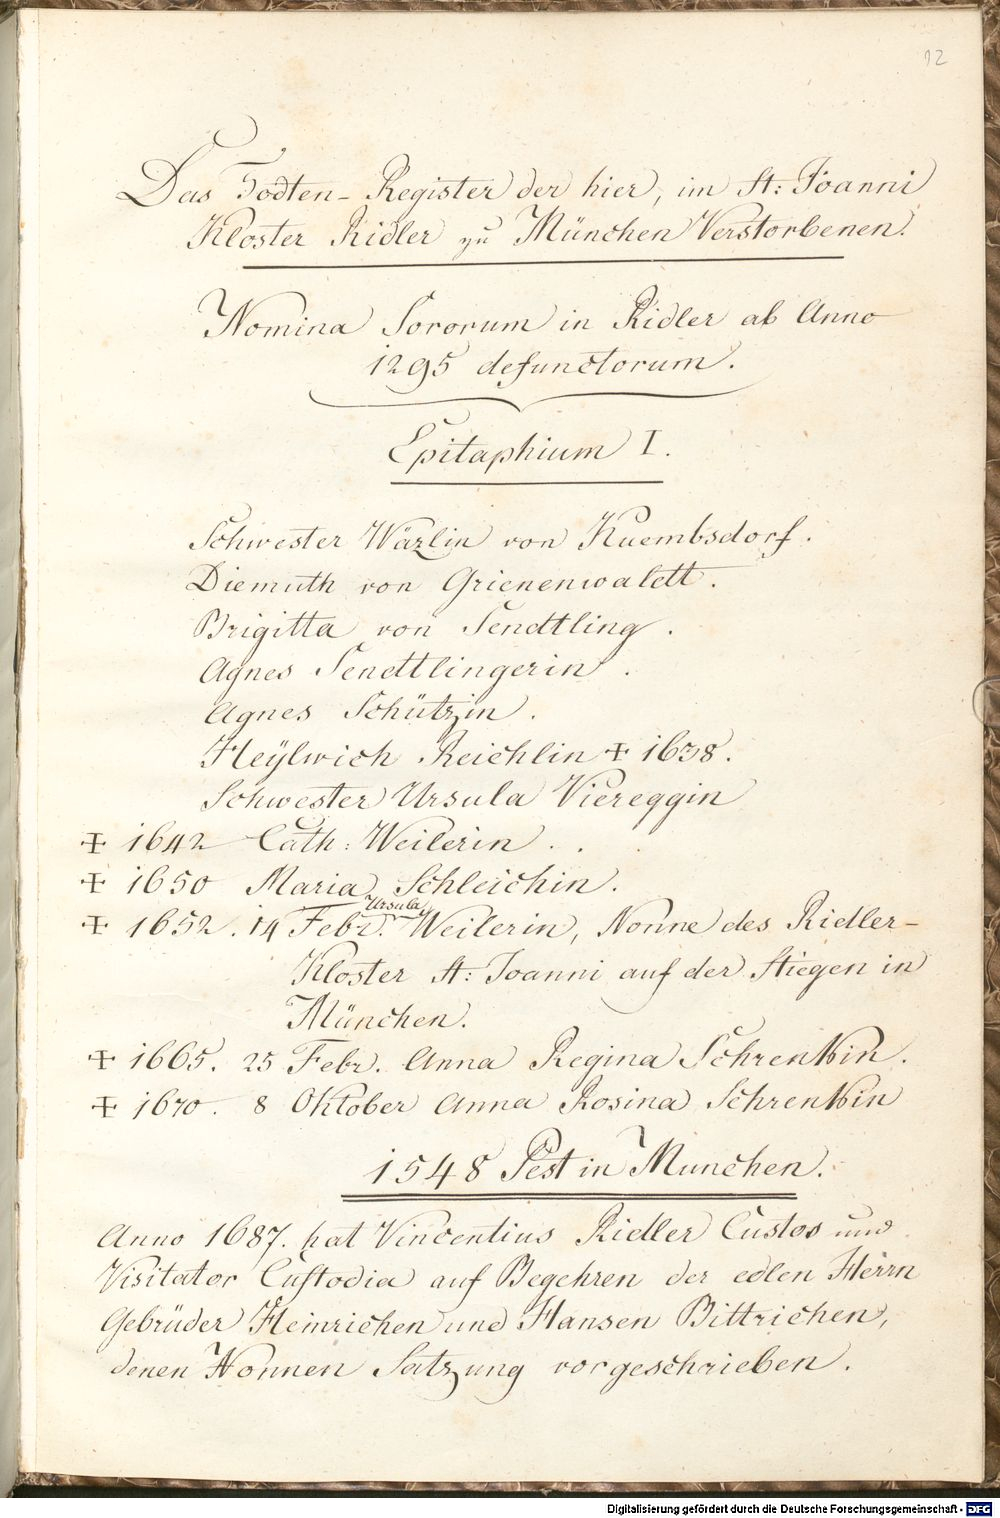 12
Das Todten-Register der hier, im St: Joanni
Kloster Ridler zu München Verstorbenen.
Nomina Sororum in Ridler ab Anno
1295 defunctorum.
Epitaphium I.
Schwester Wäzlin von Kuembsdorf.
Diemuth von Grienenwaldt.
Brigitta von Sendtling.
Agnes Sendtlingerin.
Agnes Schützin.
Heÿlwich Reichlin ✝ 1638.
Schwester Ursula Viereggin
✝ 1642 Cath: Weilerin..
✝ 1650 Maria Schleichin.
✝ 1652. 14 Febr. Ursula Weilerin, Nonne des Ridler-
Kloster St: Joanni auf der Stiegen in
München.
✝ 1665. 25 Febr. Anna Regina Schrenkin.
✝ 1670. 8 Oktober Anna Rosina Schrenkin
1548 Pest in Munchen.
Anno 1687. hat Vincentius Ridler Custos und
Visitator Custodia auf Begehren der edlen Herrn
Gebrüder Heinrichen und Hansen Bittrichen,
denen Nonnen Satzung vorgeschrieben.
Digitalisierung gefördert durch die Deutsche Forschungsgemeinschaft - DFG